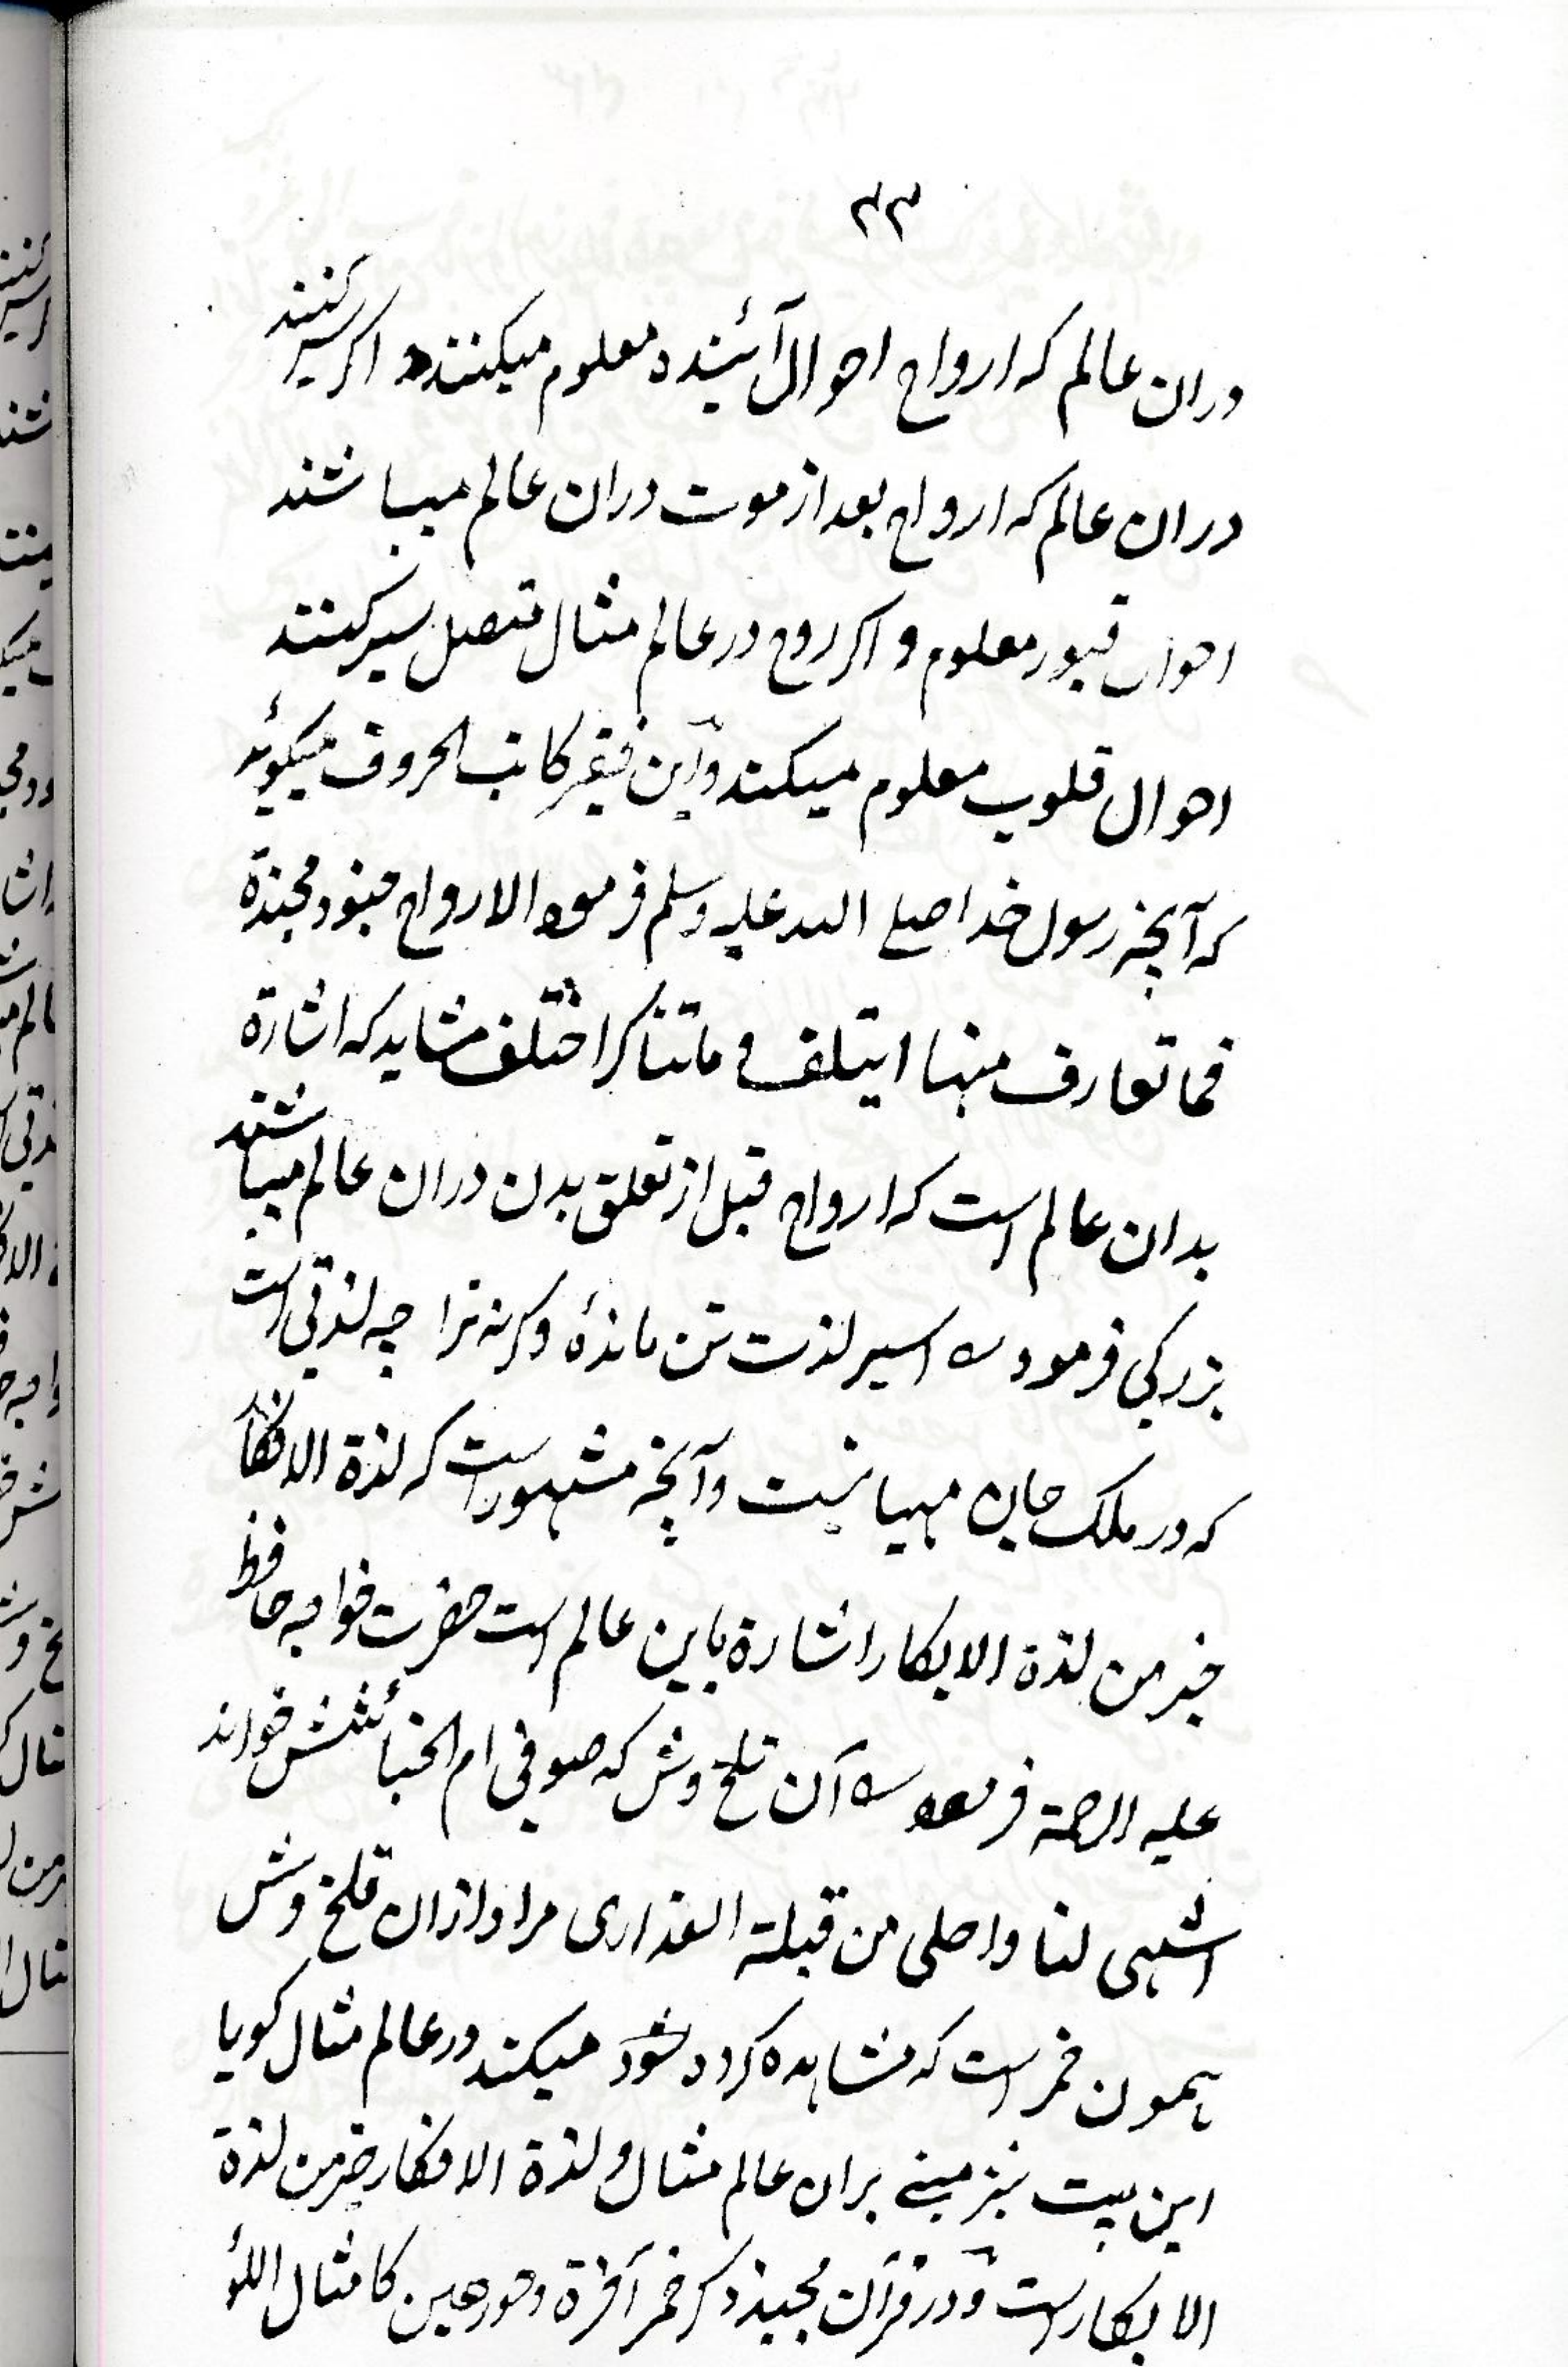 ۳۳
دران عالم که ارواح احوال آئینده معلوم میکنند و اکر سیر کنند
دران عالم که ارواح بعد از موت دران عالم میباشند
احوال قبور معلوم و اکر روح در عالم مثال متصل سیر کنند
احوال قلوب معلوم میکند و این فقیر کاتب الحروف میکوید
که آنچه رسول خدا صلے الله علیه وسلم فرموده الارواح جنود مجندة
فما تعارف منها ایتلف و ما تناکر اختلف شاید که اشارة
بدان عالم است که ارواح قبل از تعلق بدن دران عالم میباشند
بزرکی فرموده اسیر لذت تن ماندهٔ وکرنه ترا چه لذتی است
که در ملک جان مهیا نیست و آنچه مشهور است که لذة الافکار
خیر من لذة الابکار اشارة باین عالم است حضرت خواجه حافظ
علیه الرحمة فرموده آن تلخ وش که صوفی ام الخبائثش خواند
اشهی لنا واحلی من قبلة العذاری مراد ازان تلخ وش
همون خمر است که مشاهده کرده شود میکند در عالم مثال کویا
این بیت نیز مبنے بران عالم مثال و لذة الافکار خیر من لذة
الابکار است و در قرآن مجید ذکر خمر آخرة و حور عین کامثال اللؤ